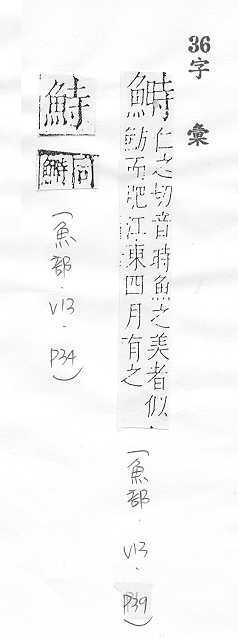 36字 彙
鰣
仁之切音時魚之美者似
魴而肥江東四月有之
(魚部.V13.P39)
同鰣
(魚部.V13.P34)